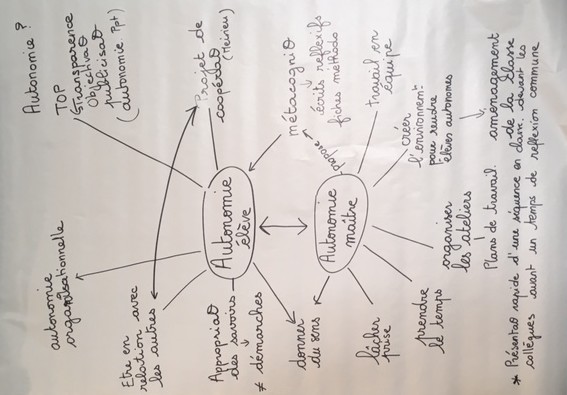 Autonomie ?
TOP
↳Transparence
Objectivaø
publicisaø
(autonomie Ppt)
Projet de
coopéraø
(Meirieu)
métacogniø
↓
écrits réflexifs
fiches méthodo
travail en
équipe
créer
l'environnemt
pour rendre
élèves autonomes
↓
aménagement
de la classe
propose
Autonomie
élève
Autonomie
maître
autonomie
organisationnelle
Etre en
relation avec
les autres
Appropriaø
des savoirs
↓
≠ démarches
donner
du sens
lâcher
prise
prendre
le temps
organiser
les ateliers
Plans de travail
* Présentaø rapide d'une séquence en classe devant les
collègues avant un temps de réflexion commune